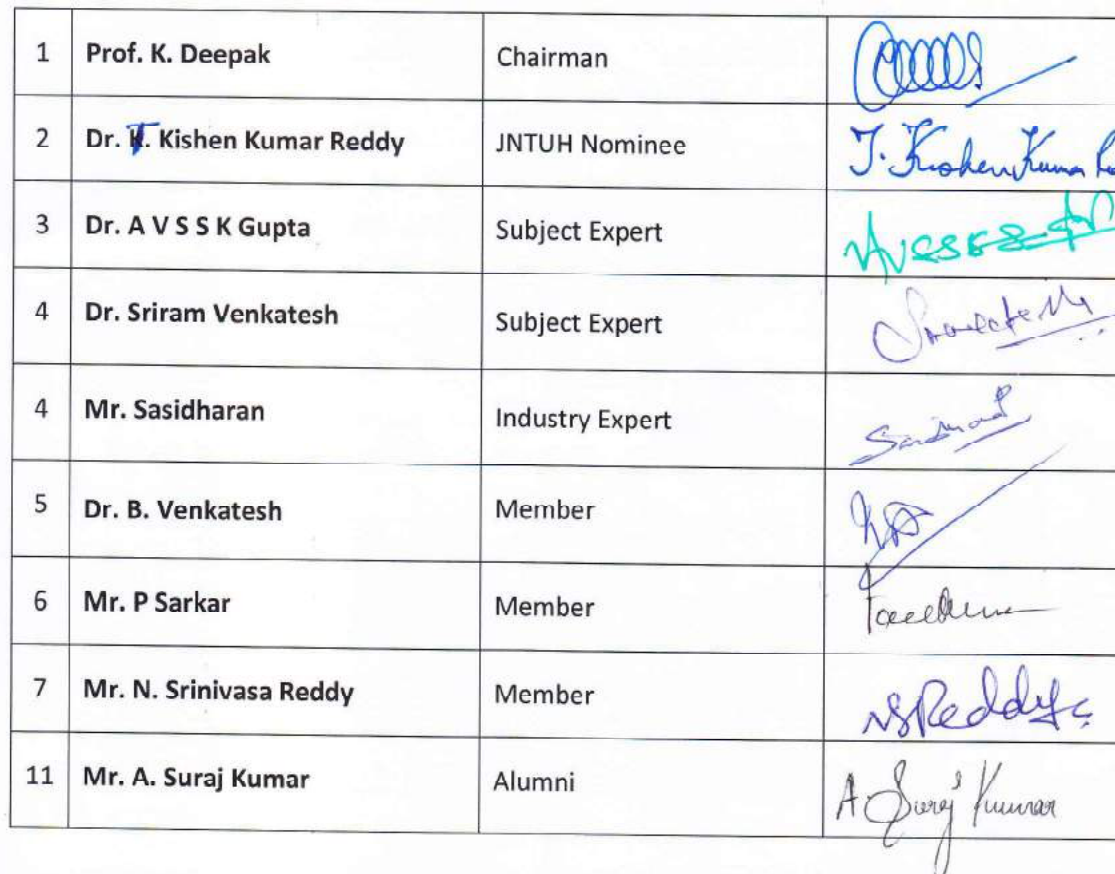 1 Prof. K. Deepak Chairman
2 Dr. T. Kishen Kumar Reddy JNTUH Nominee T. Kishen Kumar
3 Dr. A V S S K Gupta Subject Expert
4 Dr. Sriram Venkatesh Subject Expert
4 Mr. Sasidharan Industry Expert
5 Dr. B. Venkatesh Member
6 Mr. P Sarkar Member
7 Mr. N. Srinivasa Reddy Member NSReddy
11 Mr. A. Suraj Kumar Alumni A. Suraj Kumar